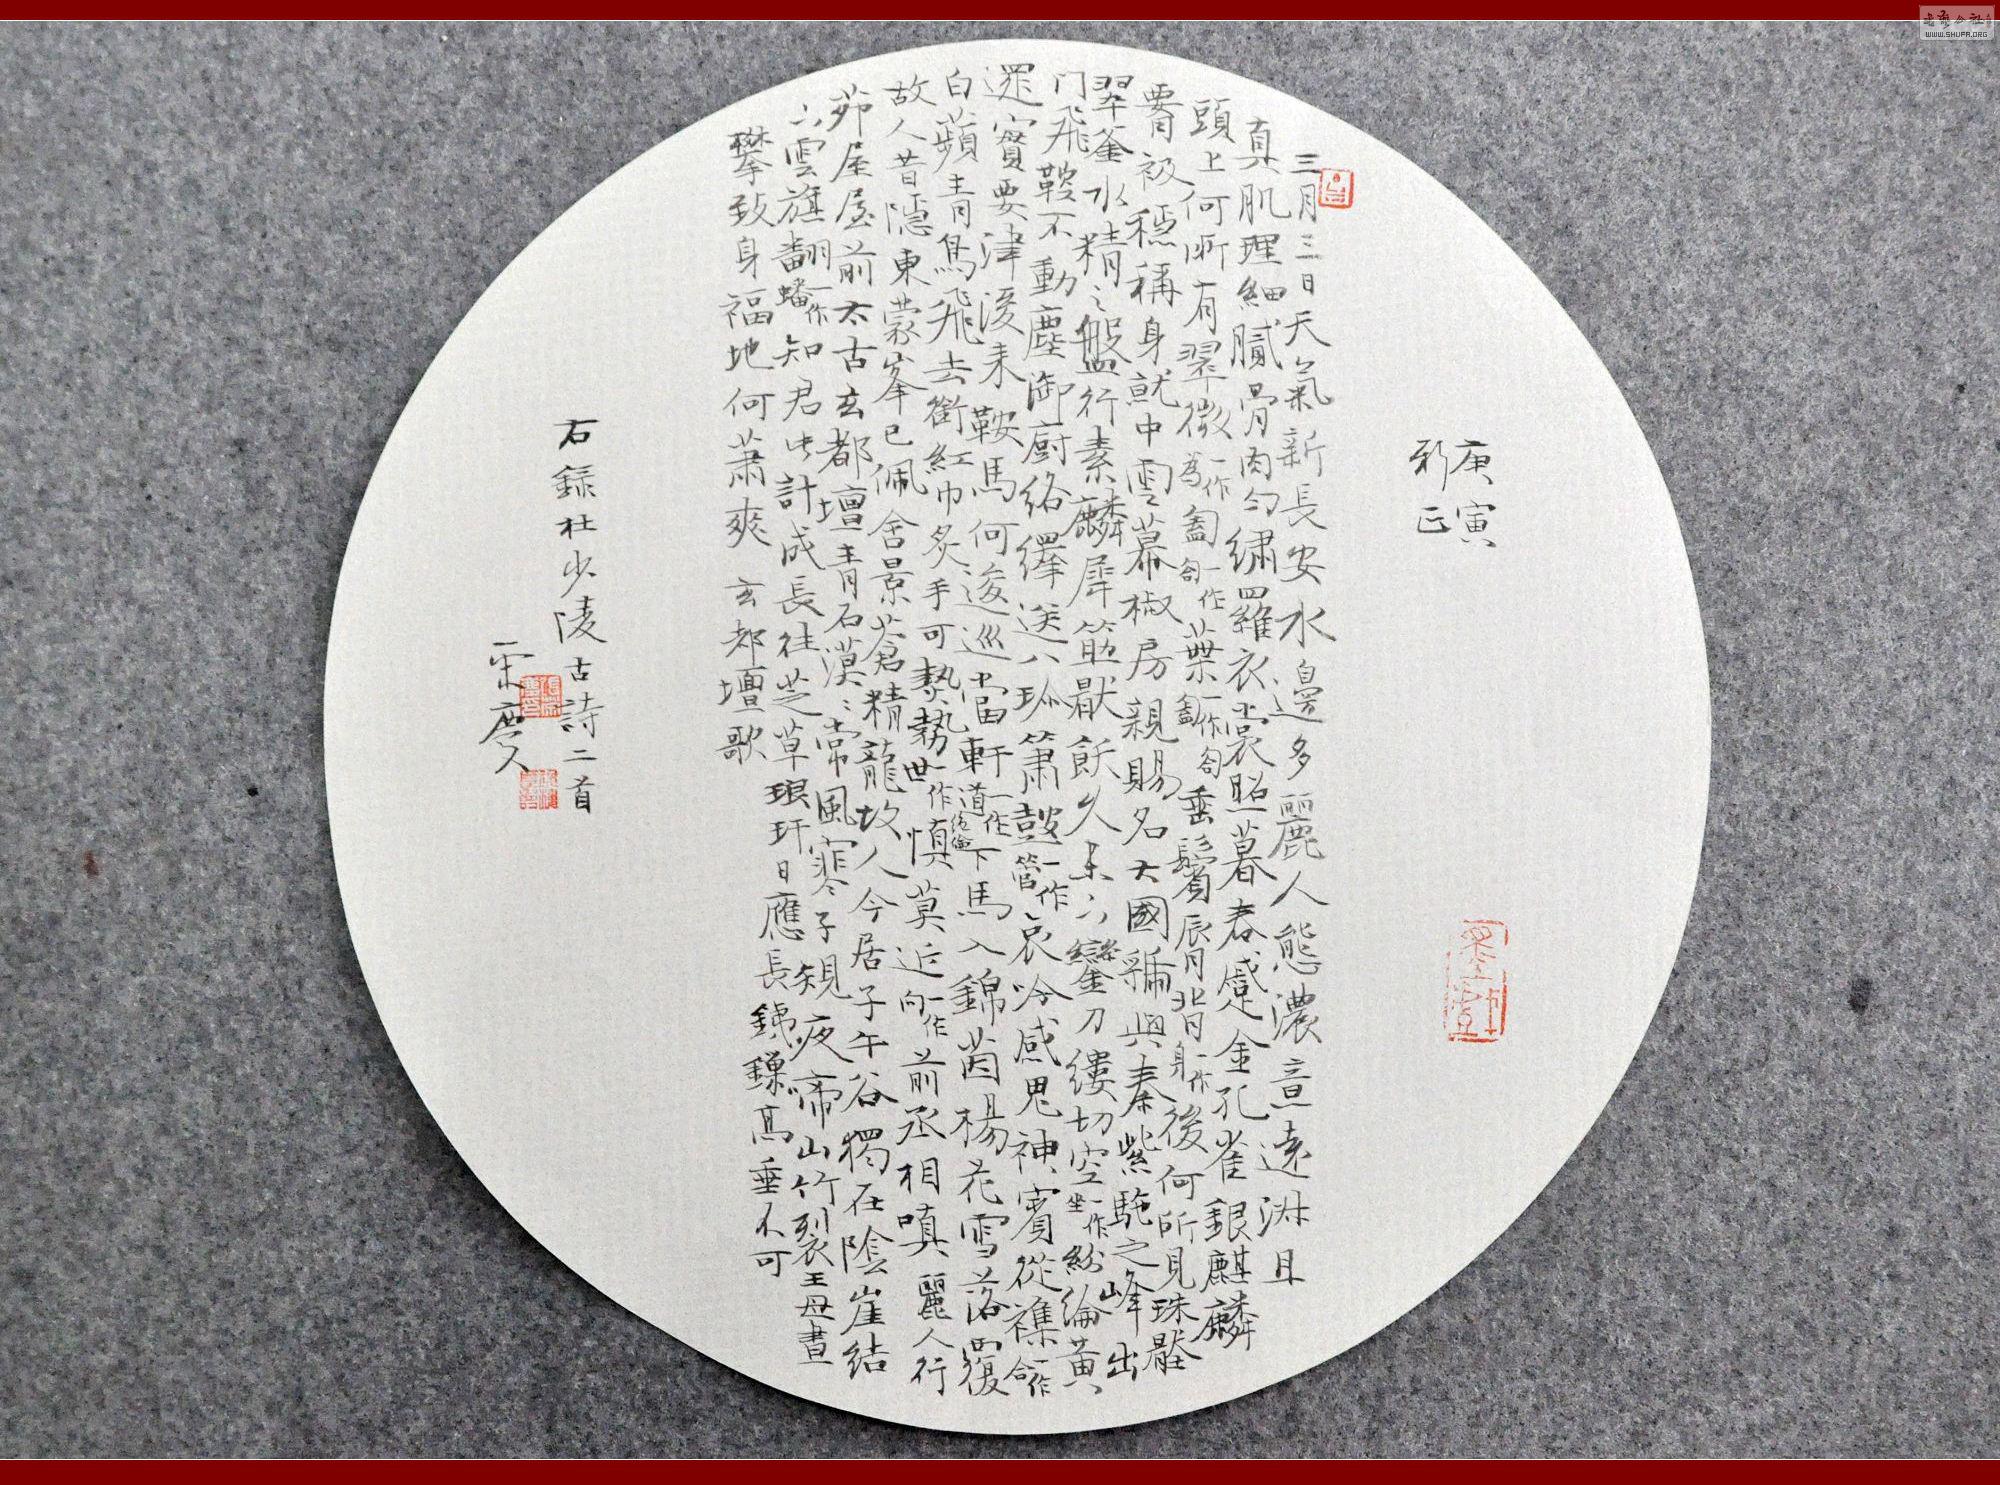 庚寅
彩正
三月三日天氣新長安水邊多麗人態濃意遠淑且
真肌理細膩骨肉勻繡羅衣裳照暮春蹙金孔雀銀麒麟
頭上何所有翠微一作為㔩一作㔩葉垂鬢脣背一作身後何所見珠壓
要衱穩稱身就中雲幕椒房親賜名大國虢與秦紫駝之峰出
翠釜水精之盤行素麟犀筯猒飫久未下鑾刀縷切空一作坐紛綸黃
门飛鞚不動塵御廚絡繹送八珍簫鼓一作管哀吟感鬼神賓從襍一作合
遝實要津後来鞍馬何逡巡當軒一作道下馬入錦茵楊花雪落覆
白蘋青鳥飛去銜紅巾炙手可熱勢一作世慎莫近一作向前丞相嗔 麗人行
故人昔隱東蒙峯已佩含景蒼精龍故人今居子午谷獨在陰崖結
茆屋屋前太古玄都壇青石漠〻常風寒子規夜啼山竹裂王母晝
下雲旗翻一作蟠知君此計成長往芝草琅玕日應長鐵鎖高垂不可
攀致身福地何蕭爽 玄都壇歌
右錄杜少陵古詩二首
WWW.SHUFA.ORG